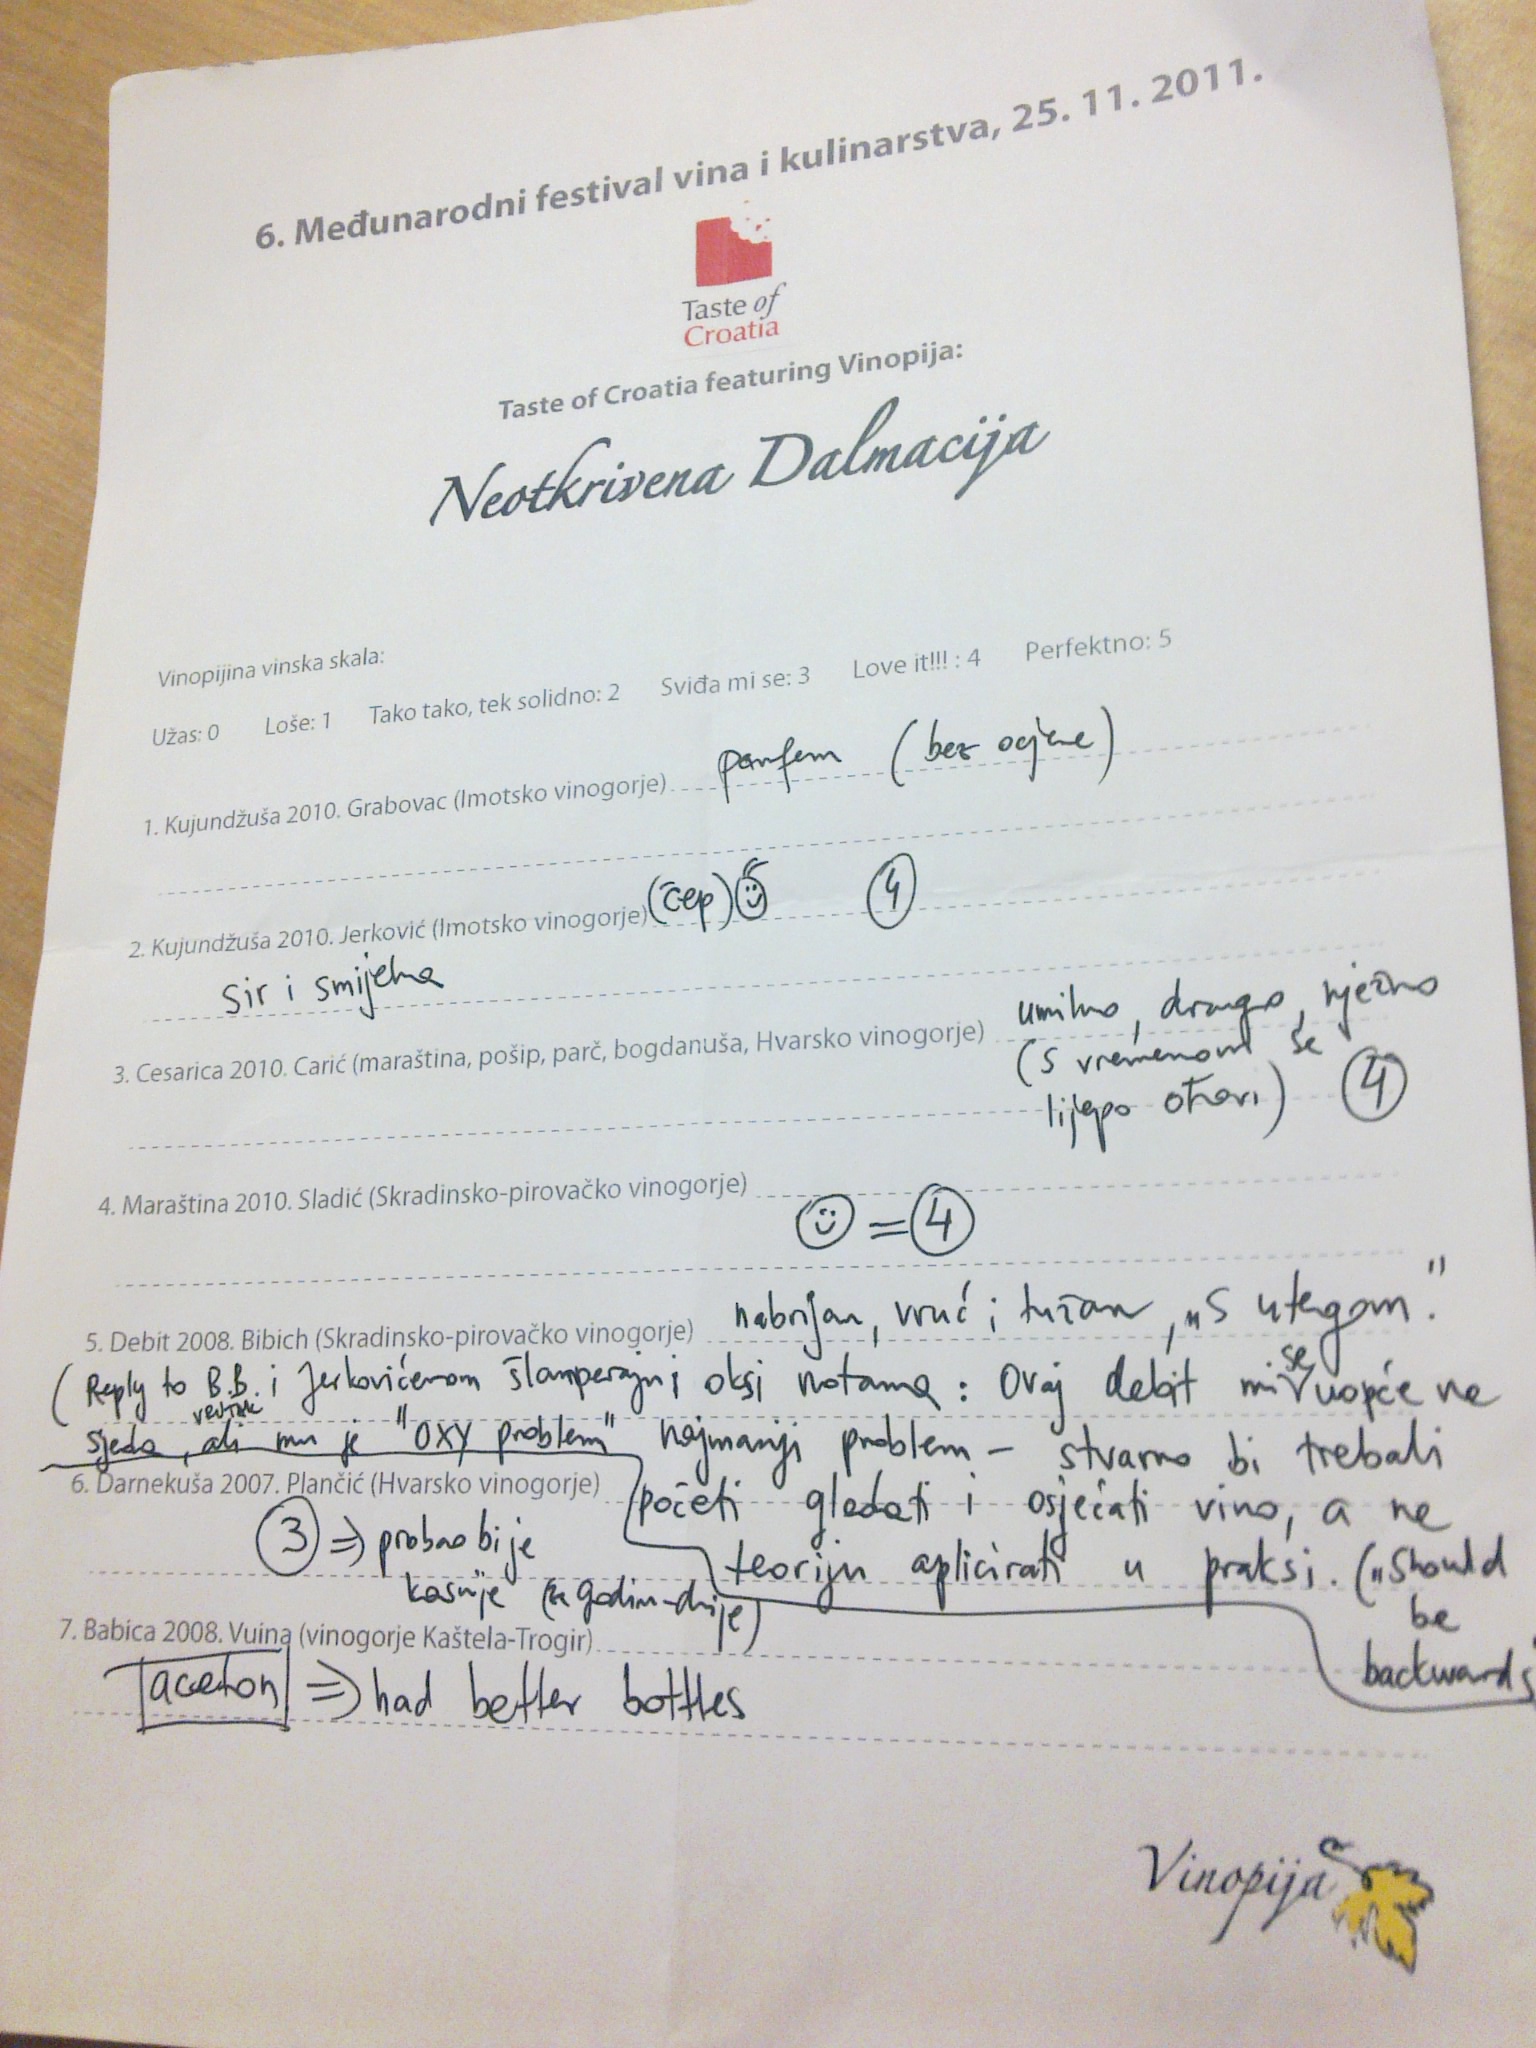 6. Međunarodni festival vina i kulinarstva, 25. 11. 2011.
Taste of
Croatia
Taste of Croatia featuring Vinopija:
Neotkrivena Dalmacija
Vinopijina vinska skala:
Užas: 0 Loše: 1 Tako tako, tek solidno: 2 Sviđa mi se: 3 Love it!!! : 4 Perfektno: 5
1. Kujundžuša 2010. Grabovac (Imotsko vinogorje) parfem (bez ocjene)
2. Kujundžuša 2010. Jerković (Imotsko vinogorje) (čep) 4
sir i smijeha
3. Cesarica 2010. Carić (maraština, pošip, parč, bogdanuša, Hvarsko vinogorje) umilno, drago, nježno
(s vremenom se
lijepo otvori) 4
4. Maraština 2010. Sladić (Skradinsko-pirovačko vinogorje)
= 4
5. Debit 2008. Bibich (Skradinsko-pirovačko vinogorje) nabrijan, vruć i tužan, „s utegom."
(Reply to B.B. i Jerkovićevom šlamperajni oksi notama: Ovaj debit mi se uopće ne
sjeda, ali mu je "oxy problem" najmanji problem – stvarno bi trebali
početi gledati i osjećati vino, a ne
teoriju aplicirati u praksi. („should
be
backwards"
6. Darnekuša 2007. Plančić (Hvarsko vinogorje)
3 => probao bi je
kasnije (za godinu-dvije)
7. Babica 2008. Vuina (vinogorje Kaštela-Trogir)
aceton => had better bottles
Vinopija